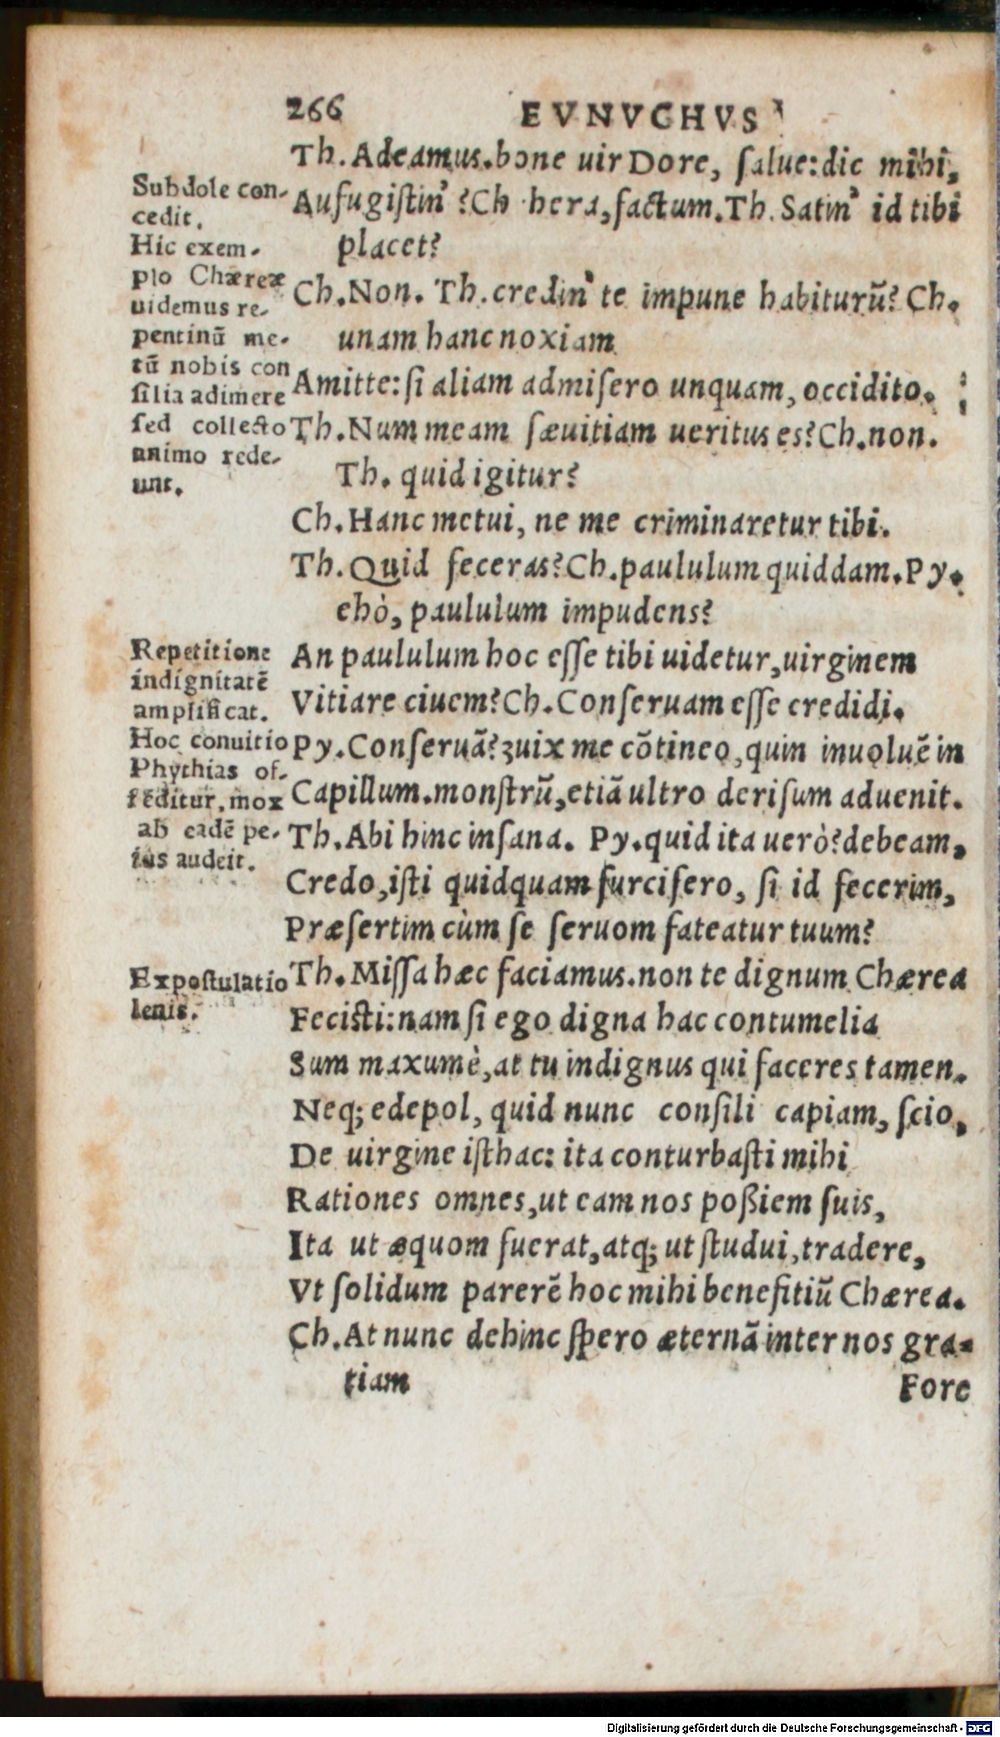 266 EVNVCHVS
Th. Adeamus. bone uir Dore, salue: dic mihi,
Aufugistin'? Ch hera, factum. Th. Satin' id tibi
placet?
Ch. Non. Th. credin' te impune habiturū? Ch.
unam hanc noxiam
Amitte: si aliam admisero unquam, occidito.
Th. Num meam sæuitiam ueritus es? Ch. non.
Th. quid igitur?
Ch. Hanc metui, ne me criminaretur tibi.
Th. Quid feceras? Ch. paululum quiddam. Py.
ehò, paululum impudens?
An paululum hoc esse tibi uidetur, uirginem
Vitiare ciuem? Ch. Conseruam esse credidi.
Py. Conseruā? uix me cōtineo, quin inuoluē in
Capillum. monstrū, etiā ultro derisum aduenit.
Th. Abi hinc insana. Py. quid ita uerò? debeam,
Credo, isti quidquam furcifero, si id fecerim,
Præsertim cùm se seruom fateatur tuum?
Th. Missa hæc faciamus. non te dignum Chærea
Fecisti: nam si ego digna hac contumelia
Sum maxumè, at tu indignus qui faceres tamen.
Neq; edepol, quid nunc consili capiam, scio,
De uirgine isthac: ita conturbasti mihi
Rationes omnes, ut eam nos poßiem suis,
Ita ut æquom fuerat, atq; ut studui, tradere,
Vt solidum parerē hoc mihi benefitiū Chærea.
Ch. At nunc dehinc spero æternā inter nos gra-
tiam
Fore
Subdole con-
cedit.
Hic exem-
plo Chæreæ
uidemus re-
pentinū me-
tū nobis con
silia adimere
sed collecto
animo rede-
unt.
Repetitione
indignitatē
amplificat.
Hoc conuitio
Phythias of-
fēditur, mox
ab eadē pe-
ius audeit.
Expostulatio
lenis.
Digitalisierung gefördert durch die Deutsche Forschungsgemeinschaft - DFG